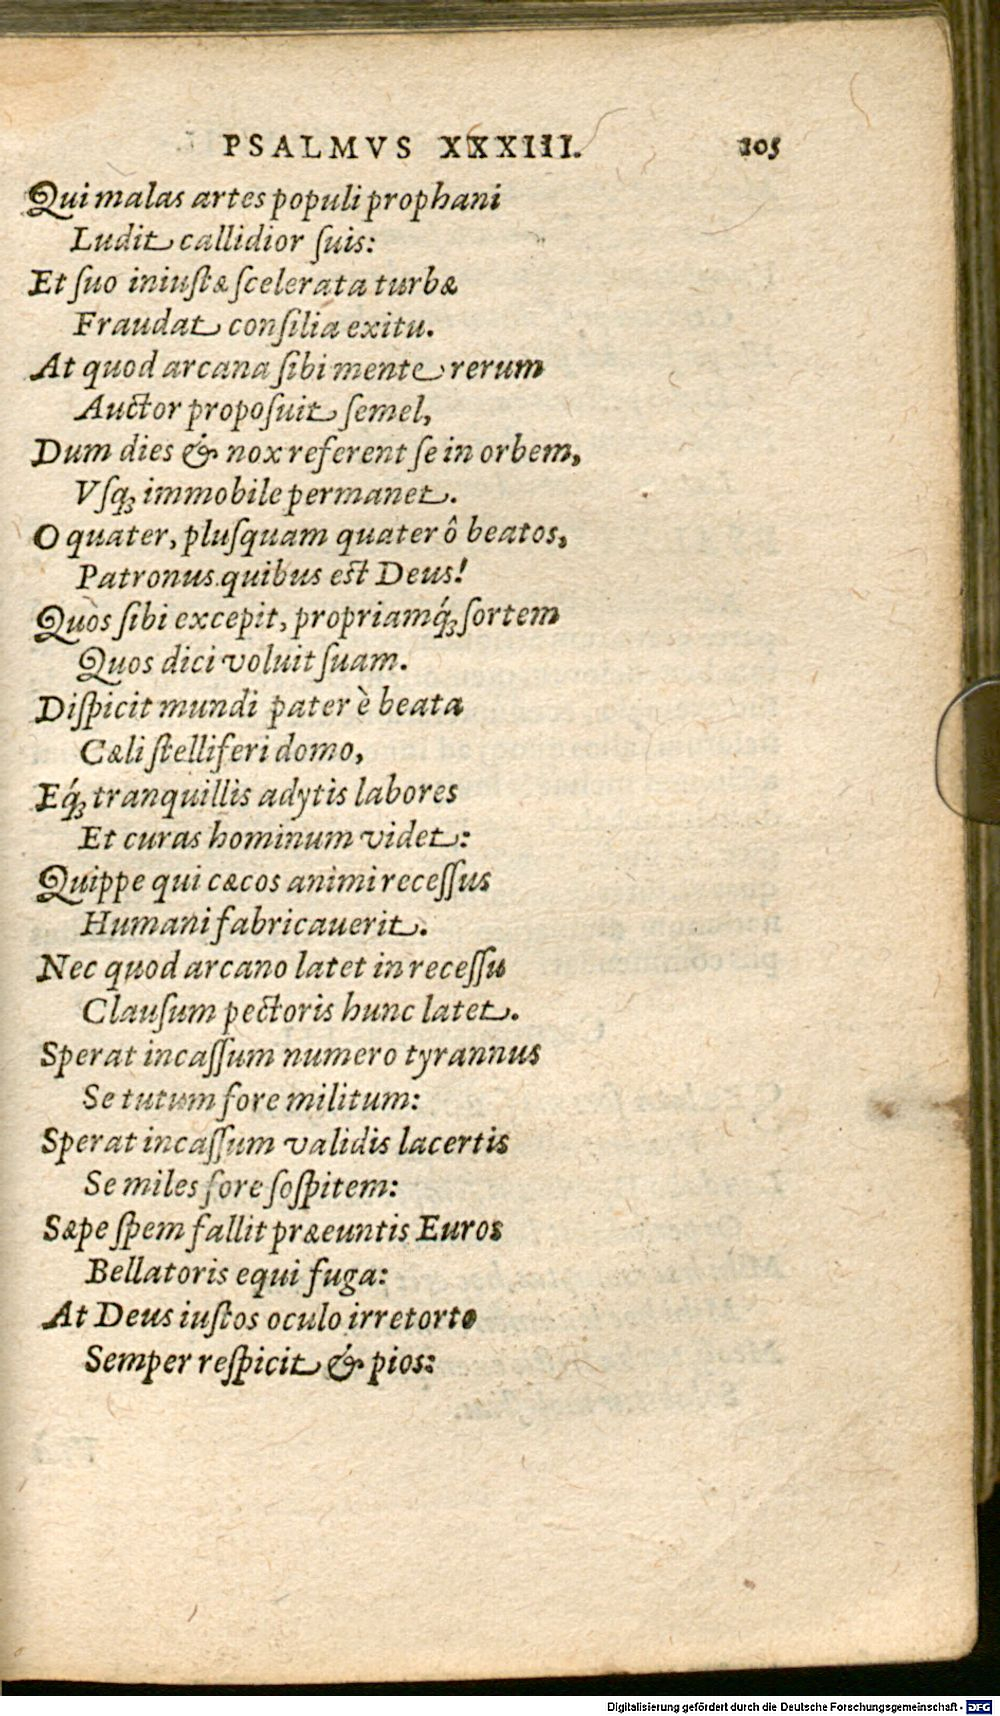 PSALMVS XXXIII. 105
Qui malas artes populi prophani
Ludit callidior ſuis:
Et ſuo iniuſtæ ſcelerata turbæ
Fraudat conſilia exitu.
At quod arcana ſibi mente rerum
Auctor propoſuit ſemel,
Dum dies & nox referent ſe in orbem,
Vſq́; immobile permanet.
O quater, pluſquam quater ô beatos,
Patronus quibus eſt Deus!
Quos ſibi excepit, propriamq́; ſortem
Quos dici voluit ſuam.
Diſpicit mundi pater è beata
Cæli ſtelliferi domo,
Eq́; tranquillis adytis labores
Et curas hominum videt:
Quippe qui cæcos animi receſſus
Humani fabricauerit.
Nec quod arcano latet in receſſu
Clauſum pectoris hunc latet.
Sperat incaſſum numero tyrannus
Se tutum fore militum:
Sperat incaſſum validis lacertis
Se miles fore ſoſpitem:
Sæpe ſpem fallit præeuntis Euros
Bellatoris equi fuga:
At Deus iuſtos oculo irretorto
Semper reſpicit & pios:
Digitalisierung gefördert durch die Deutsche Forschungsgemeinschaft - DFG